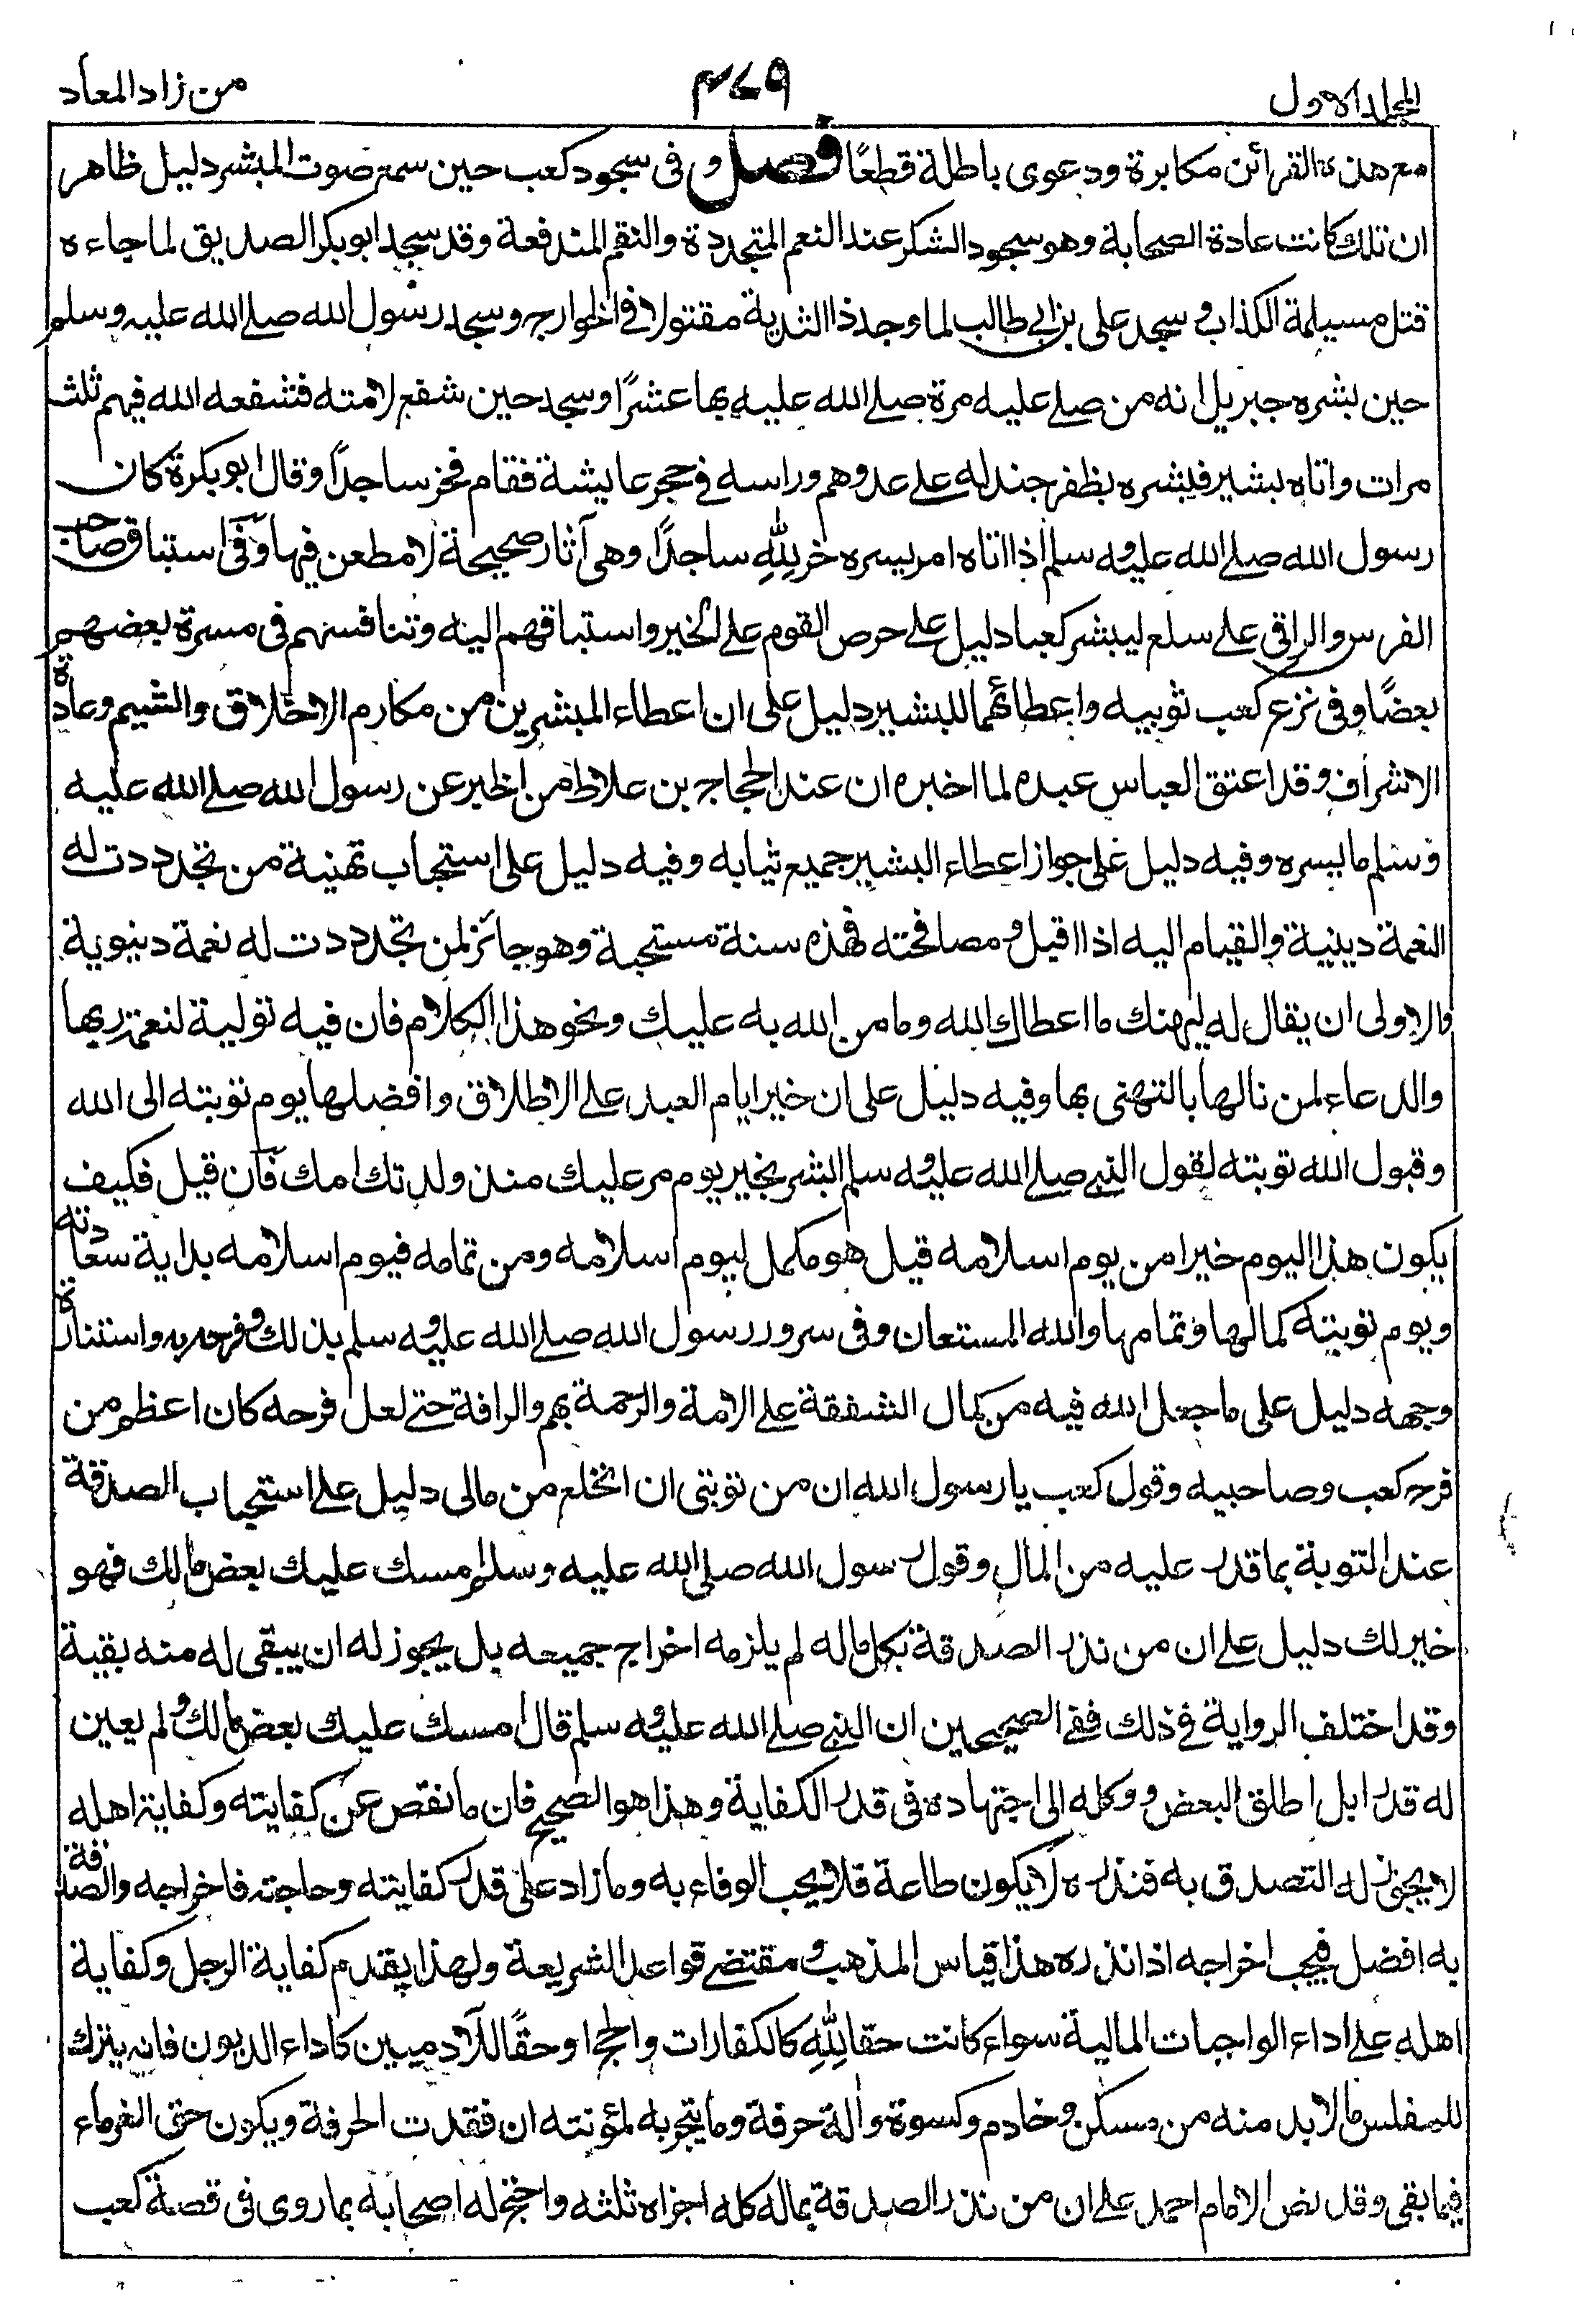 المجلد الاول
٤٧٩
من زاد المعاد
مع هذه القرائن مكابرة ودعوى باطلة قطعًا فصل وفى سجود كعب حين سمع صوت المبشر دليل ظاهر
ان تلك كانت عادة الصحابة وهو سجود الشكر عند النعم المتجددة والنقم المندفعة وقد سجد ابو بكر الصديق لما جاءه
قتل مسيلمة الكذاب وسجد على بن ابى طالب لما وجد ذا الثدية مقتولا فى الخوارج وسجد رسول الله صلے الله عليه وسلم
حين بشره جبريل انه من صلے عليه مرة صلے الله عليه بها عشرًا وسجد حين شفع لامته فشفعه الله فيهم ثلث
مرات واتاه بشير فبشره بظفر جند له علے عدوهم وراسه فى حجر عايشة فقام فخر ساجدًا وقال ابو بكرة كان
رسول الله صلے الله عليه وسلم اذا اتاه امر يسره خر لِلّٰهِ ساجدًا وهى آثار صحيحة لا مطعن فيها وفى استباق صاحب
الفرس والراقى علے سلع ليبشر كعبا دليل علے حرص القوم علے الخير واستباقهم اليه وتنافسهم فى مسرة بعضهم
بعضًا وفى نزع كعب ثوبيه واعطائهما للبشير دليل على ان اعطاء المبشرين من مكارم الاخلاق والشيم وعادة
الاشراف وقد اعتق العباس عبده لما اخبره ان عند الحجاج بن علاط من الخبر عن رسول الله صلے الله عليه
وسلم ما يسره وفيه دليل على جواز اعطاء البشير جميع ثيابه وفيه دليل على استحباب تهنية من تجددت له
النعمة دينية والقيام اليه اذا اقبل ومصافحته فهذه سنة مستحبة وهو جائز لمن تجددت له نعمة دنيوية
والاولى ان يقال له ليهنك ما اعطاك الله وما من الله به عليك ونحو هذا الكلام فان فيه تولية لنعمة ربها
والدعاء لمن نالها بالتهنى بها وفيه دليل على ان خير ايام العبد علے الاطلاق وافضلها يوم توبته الى الله
وقبول الله توبته لقول النبے صلے الله عليه وسلم ابشر بخير يوم مر عليك منذ ولدتك امك فان قيل فكيف
يكون هذا اليوم خيرا من يوم اسلامه قيل هو مكمل ليوم اسلامه ومن تمامه فيوم اسلامه بداية سعادته
ويوم توبيته كمالها وتمامها والله المستعان وفى سرور رسول الله صلے الله عليه وسلم بذلك وفرحه به واستنارة
وجهه دليل على ما جعل الله فيه من كمال الشفقة علے الامة والرحمة بهم والرافة حتے لعل فرحه كان اعظم من
فرح كعب وصاحبيه وقول كعب يا رسول الله ان من توبتى ان انخلع من مالى دليل علے استحباب الصدقة
عند التوبة بما قدر عليه من المال وقول رسول الله صلى الله عليه وسلم امسك عليك بعض مالك فهو
خير لك دليل علے ان من نذر الصدقة بكل ماله لم يلزمه اخراج جميعه بل يجوز له ان يبقى له منه بقية
وقد اختلف الرواية فى ذلك ففے الصحيحين ان النبے صلے الله عليه وسلم قال امسك عليك بعض مالك ولم يعين
له قدرا بل اطلق البعض ووكله الى اجتهاده فى قدر الكفاية وهذا هو الصحيح فان ما نقص عن كفايته وكفاية اهله
لا يجوز له التصدق به فنذره لا يكون طاعة فلا يجب الوفاء به وما زاد على قدر كفايته وحاجته فاخراجه والصدقة
به افضل فيجب اخراجه اذا نذره هذا قياس المذهب ومقتضے قواعد الشريعة ولهذا يقدم كفاية الرجل وكفاية
اهله علے اداء الواجبات المالية سواء كانت حقا لِلّٰهِ كالكفارات والحج او حقًا للآدميين كاداء الديون فانه يترك
للمفلس ما لا بد منه من مسكن وخادم وكسوة والة حرفة وما يتجر به لمؤنته ان فقدت الحرفة ويكون حق الغرماء
فيما بقى وقد نص الامام احمد علے ان من نذر الصدقة بماله كله اجزاه ثلثه واحتج له اصحابه بما روى فى قصة كعب